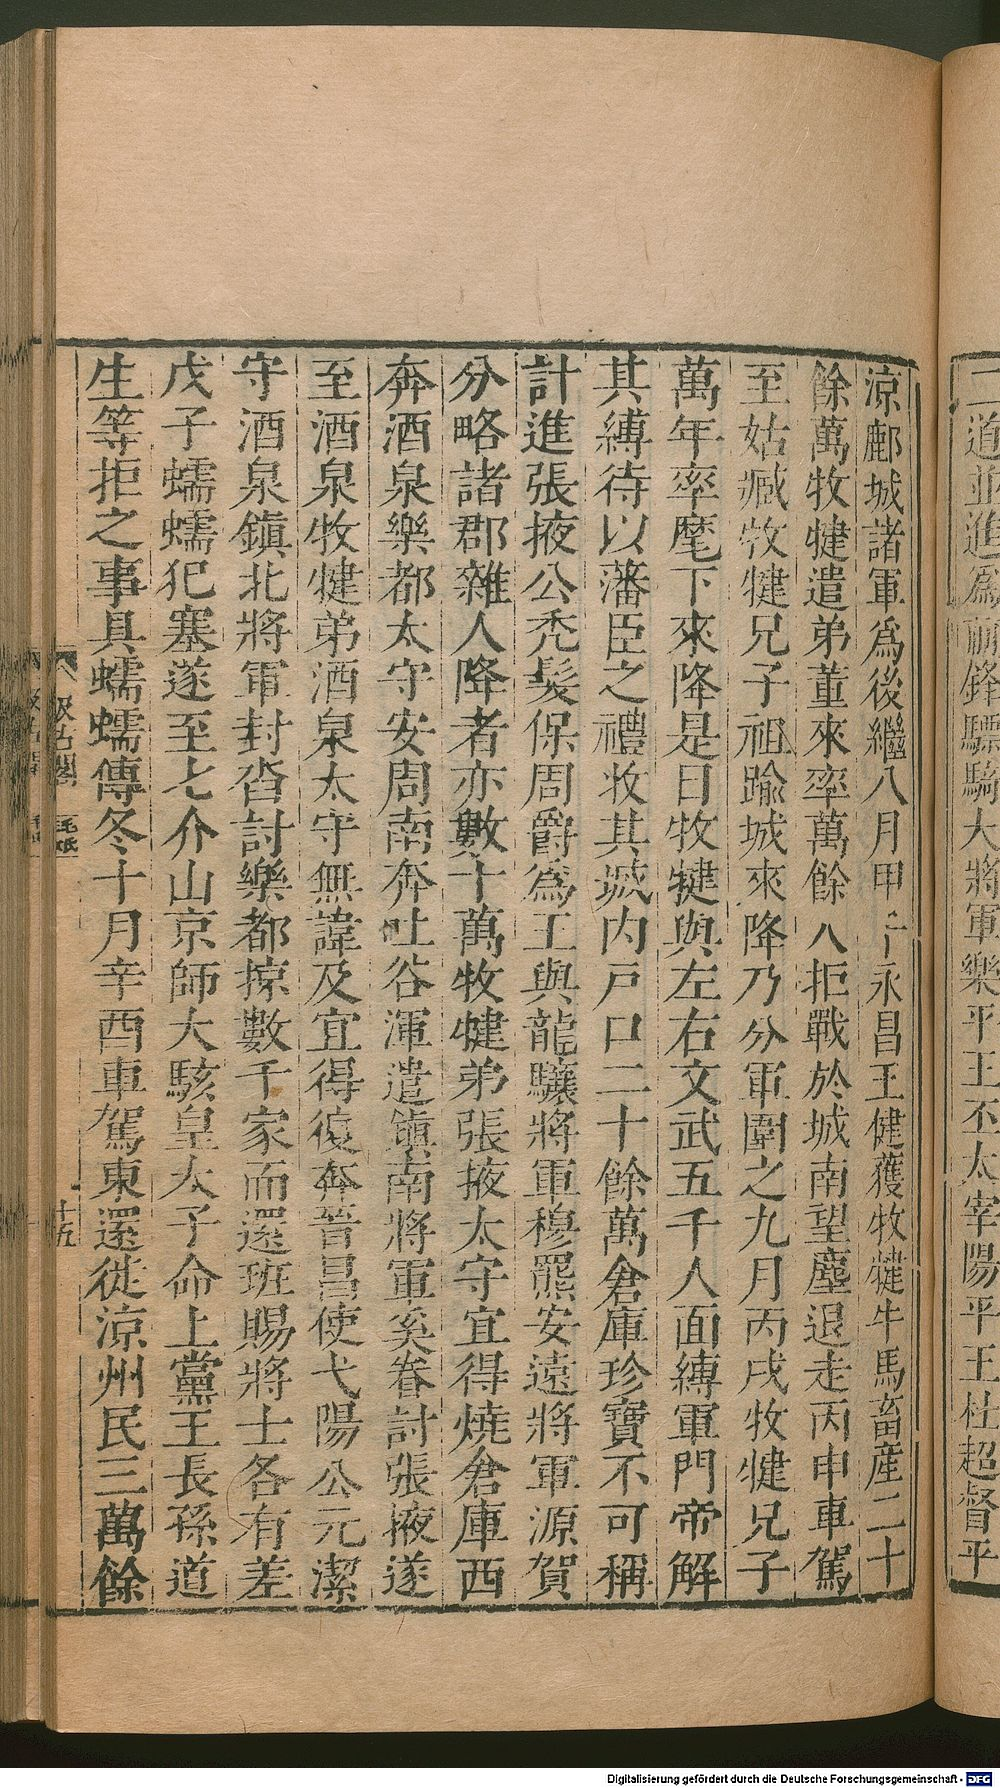 二道並進爲前鋒驃騎大將軍樂平王丕太宰陽平王杜超督平
涼鄜城諸軍爲後繼八月甲午永昌王健獲牧犍牛馬畜產二十
餘萬牧犍遣弟董來率萬餘人拒戰於城南望塵退走丙申車駕
至姑臧牧犍兄子祖踰城來降乃分軍圍之九月丙戌牧犍兄子
萬年率麾下來降是日牧犍與左右文武五千人面縛軍門帝解
其縛待以藩臣之禮收其城內戶口二十餘萬倉庫珍寶不可稱
計進張掖公禿髮保周爵爲王與龍驤將軍穆羆安遠將軍源賀
分略諸郡雜人降者亦數十萬牧犍弟張掖太守宜得燒倉庫西
奔酒泉樂都太守安周南奔吐谷渾遣鎮南將軍奚眷討張掖遂
至酒泉牧犍弟酒泉太守無諱及宜得復奔晉昌使弋陽公元潔
守酒泉鎮北將軍封沓討樂都掠數千家而還班賜將士各有差
戊子蠕蠕犯塞遂至七介山京師大駭皇太子命上黨王長孫道
生等拒之事具蠕蠕傳冬十月辛酉車駕東還徙涼州民三萬餘
汲古閣
毛氏
十五
Digitalisierung gefördert durch die Deutsche Forschungsgemeinschaft - DFG